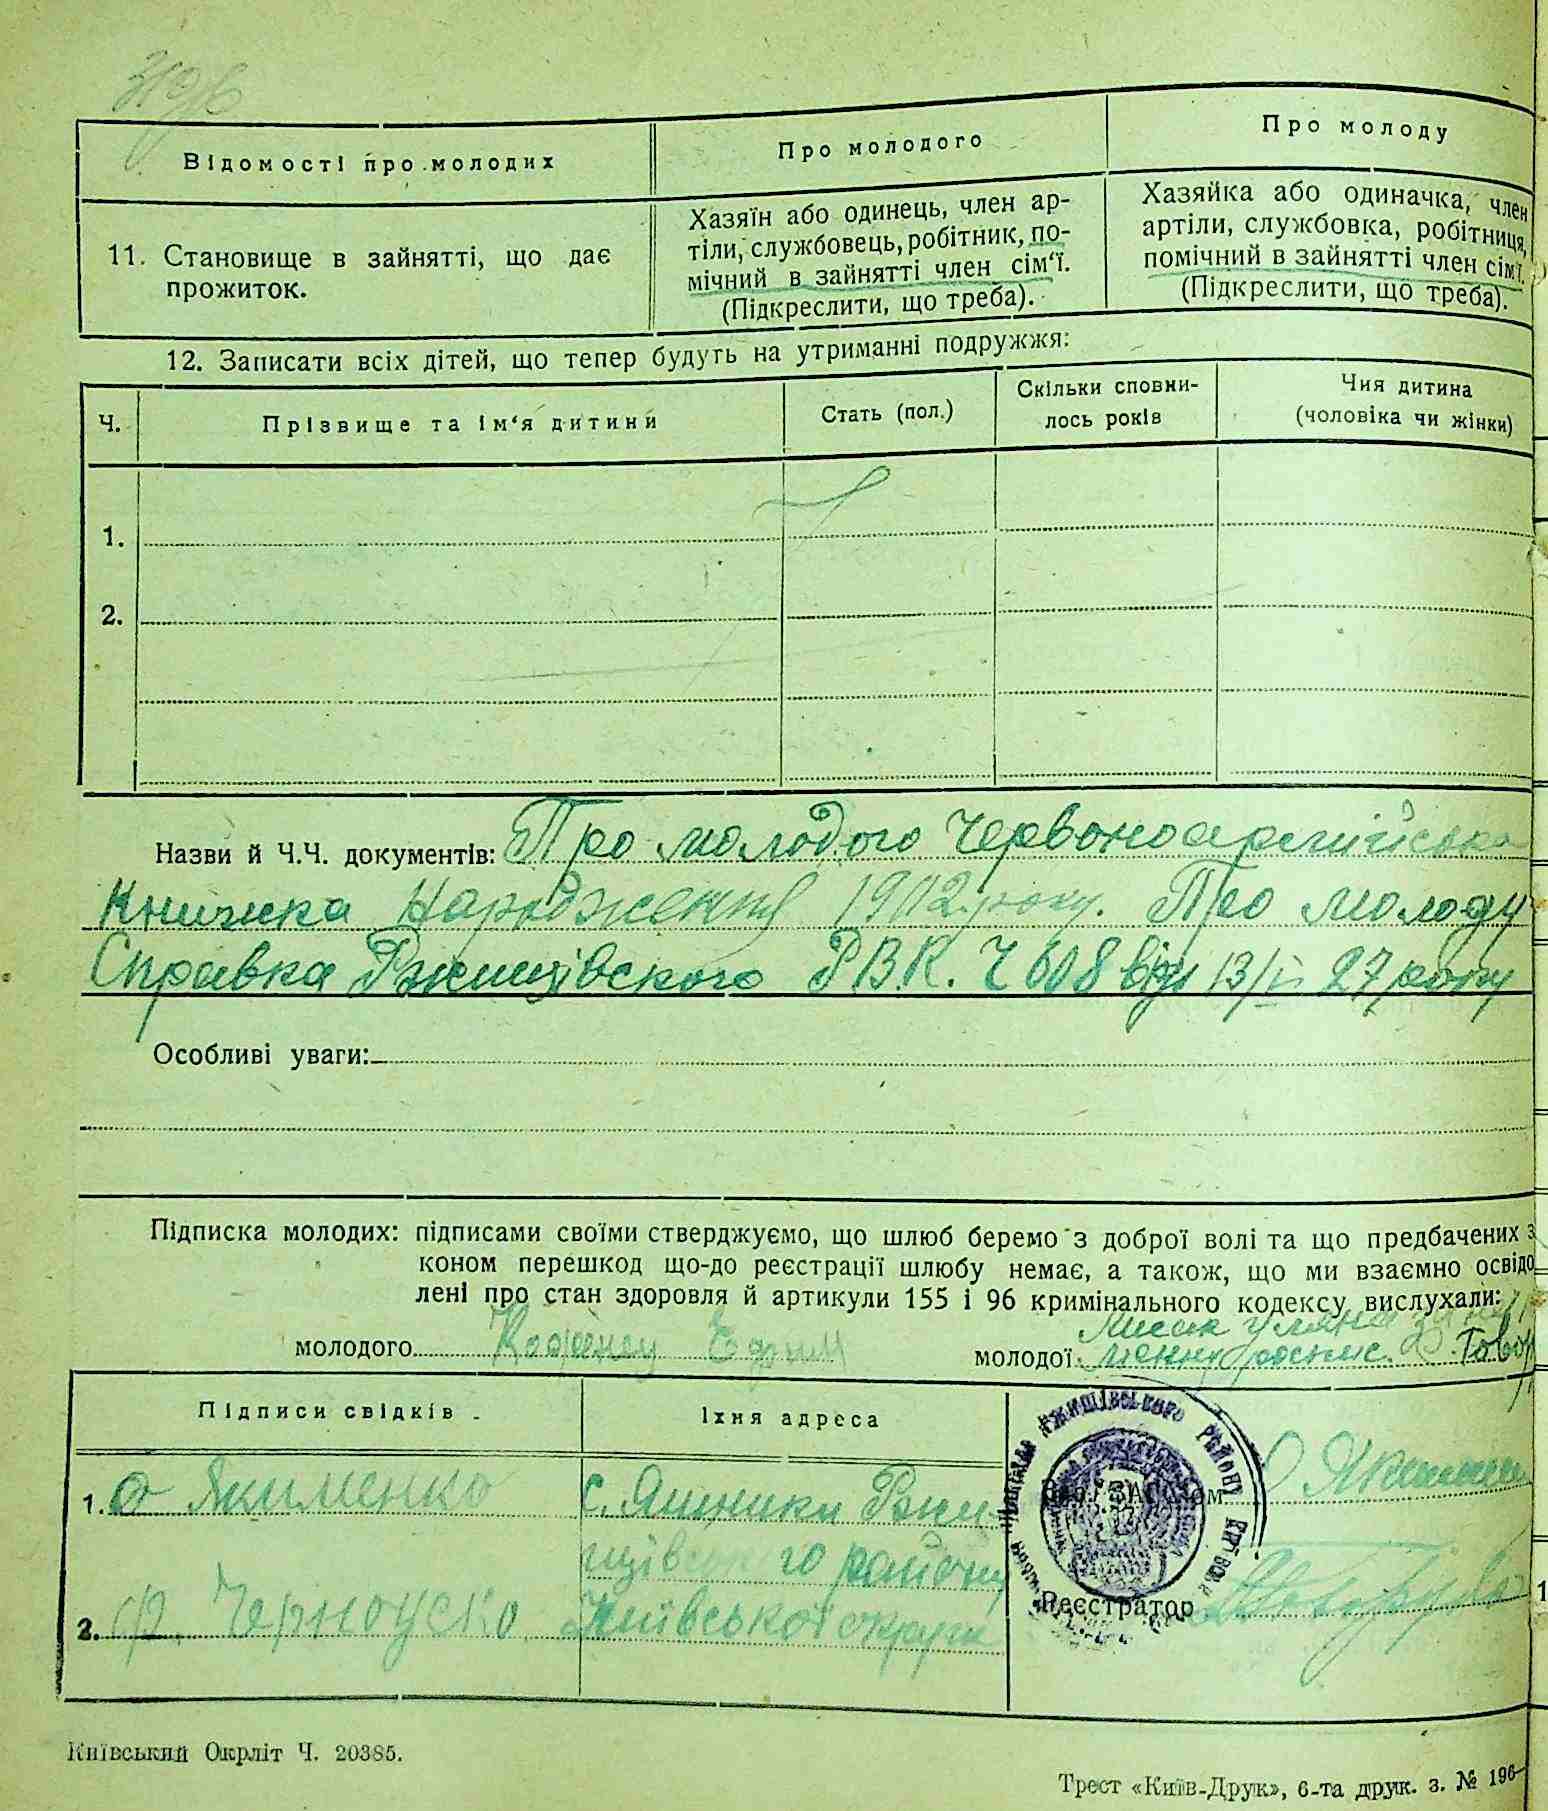 319б
Відомості про молодих
Про молодого
Про молоду
11. Становище в зайнятті, що дає
прожиток.
Хазяїн або одинець, член ар-
тіли, службовець, робітник, по-
мічний в зайнятті член сім'ї.
(Підкреслити, що треба).
Хазяйка або одиначка, член
артіли, службовка, робітниця,
помічний в зайнятті член сім'ї.
(Підкреслити, що треба).
12. Записати всіх дітей, що тепер будуть на утриманні подружжя:
Ч.
Прізвище та ім'я дитини
Стать (пол.)
Скільки сповни-
лось років
Чия дитина
(чоловіка чи жінки)
1.
2.
Назви й Ч.Ч. документів: Про молодого Червоноармійська
Книжка Народження 1902 року. Про молоду
Справка Ржищівського РВК. Ч 608 від 13/ 27 року
Особливі уваги:
Підписка молодих: підписами своїми стверджуємо, що шлюб беремо з доброї волі та що предбачених з
коном перешкод що-до реєстрації шлюбу немає, а також, що ми взаємно освідо
лені про стан здоровля й артикули 155 і 96 кримінального кодексу вислухали:
молодого
молодої
Підписи свідків
Їхня адреса
1. О Якименко
с. Яшники Ржи-
щівського району
2. Ф. Черноуско
Київської округи
Реєстратор
РЖИЩІВСЬКОГО РАЙОНУ
Київський Окрліт Ч. 20385.
Трест «Київ-Друк», 6-та друк. з. № 196